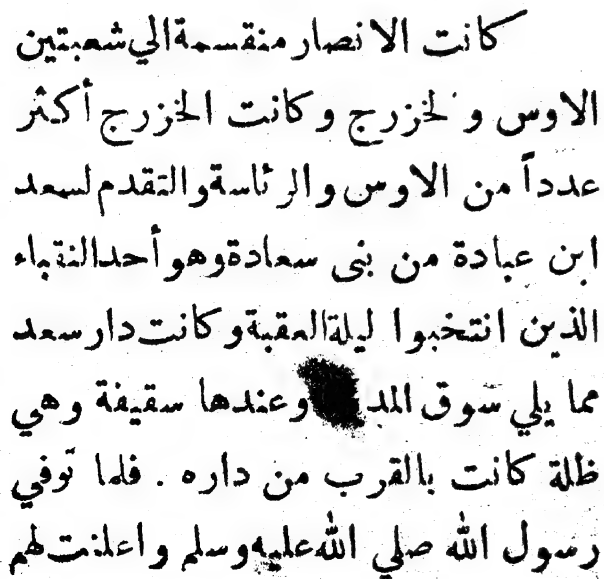 كانت الانصار منقسمة الي شعبتين
الاوس و لخزرج وكانت الخزرج أكثر
عدداً من الاوس والرئاسة والتقدم لسعد
ابن عبادة من بنى سعادة وهو أحد النقباء
الذين انتخبوا ليلة العقبة وكانت دار سعد
مما يلي سوق وعندها سقيفة وهي
ظلة كانت بالقرب من داره . فلما توفي
رسول الله صلي الله عليه وسلم واعلنت لهم